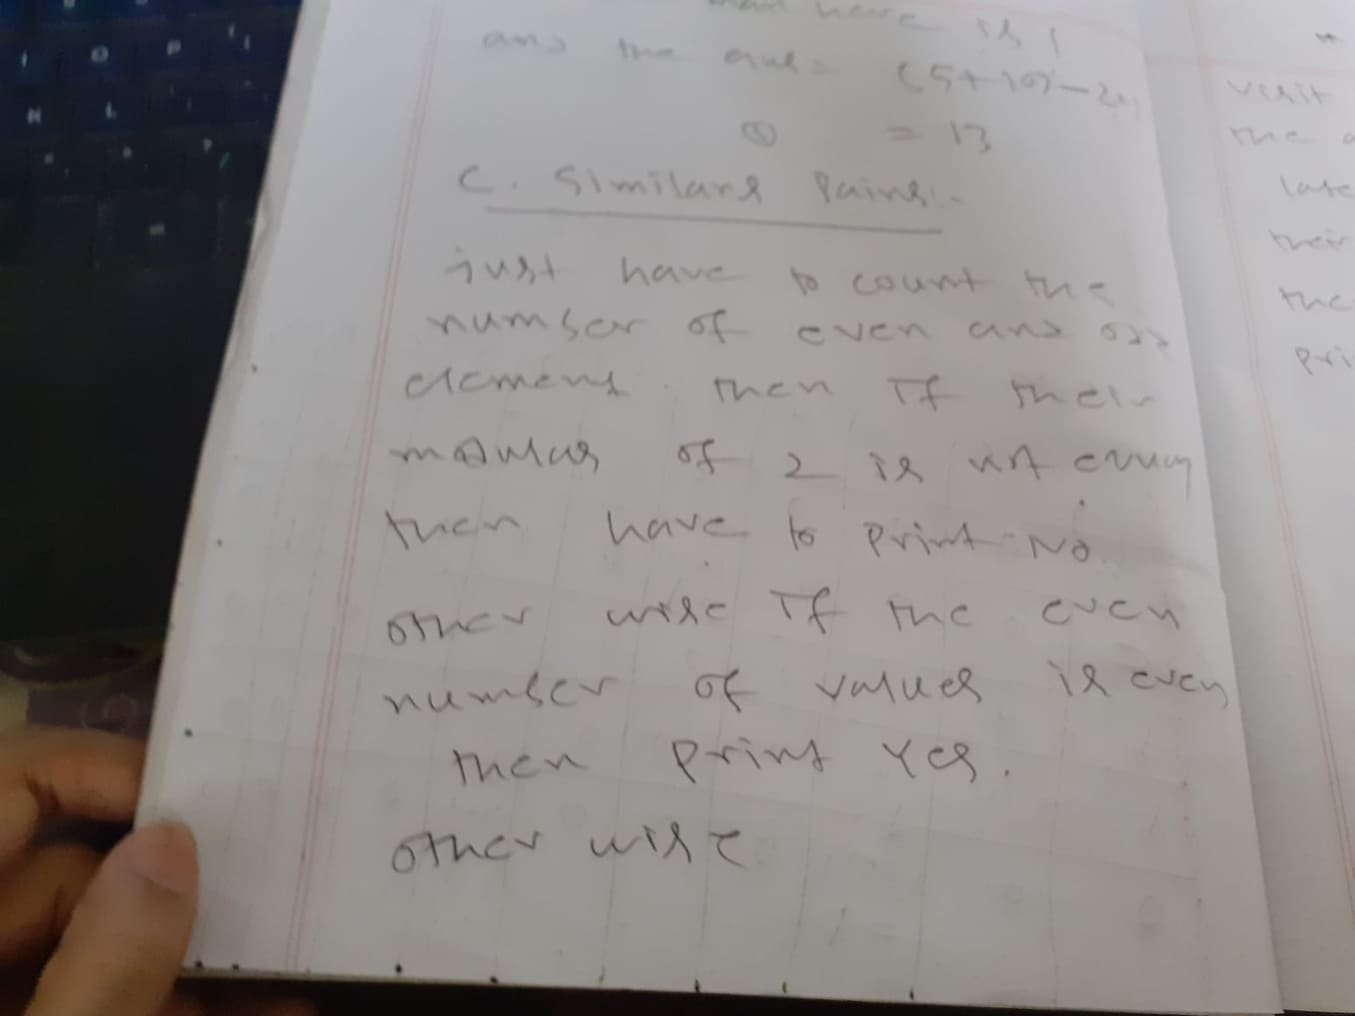 I O P
K L
man here is 1
and the ans = (5+10)-2
① = 13
C. Similars Pairs:-
just have to count the
number of even and odd
element. then If their
modulus of 2 is not
then have to print No.
other wise If the even
number of values is even
then print Yes.
other wise
visit
the
late
their
the
pri